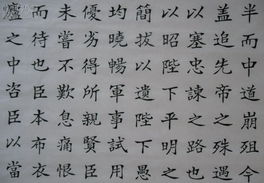 半而中道崩殂今
蓋追先帝之殊遇
以塞忠諫之路也
以昭陛下平明之
簡拔以遺陛下愚
均曉暢軍事試用
優劣得所親賢臣
未嘗不歎息痛恨
而待也臣本布衣
廬之中咨臣以當